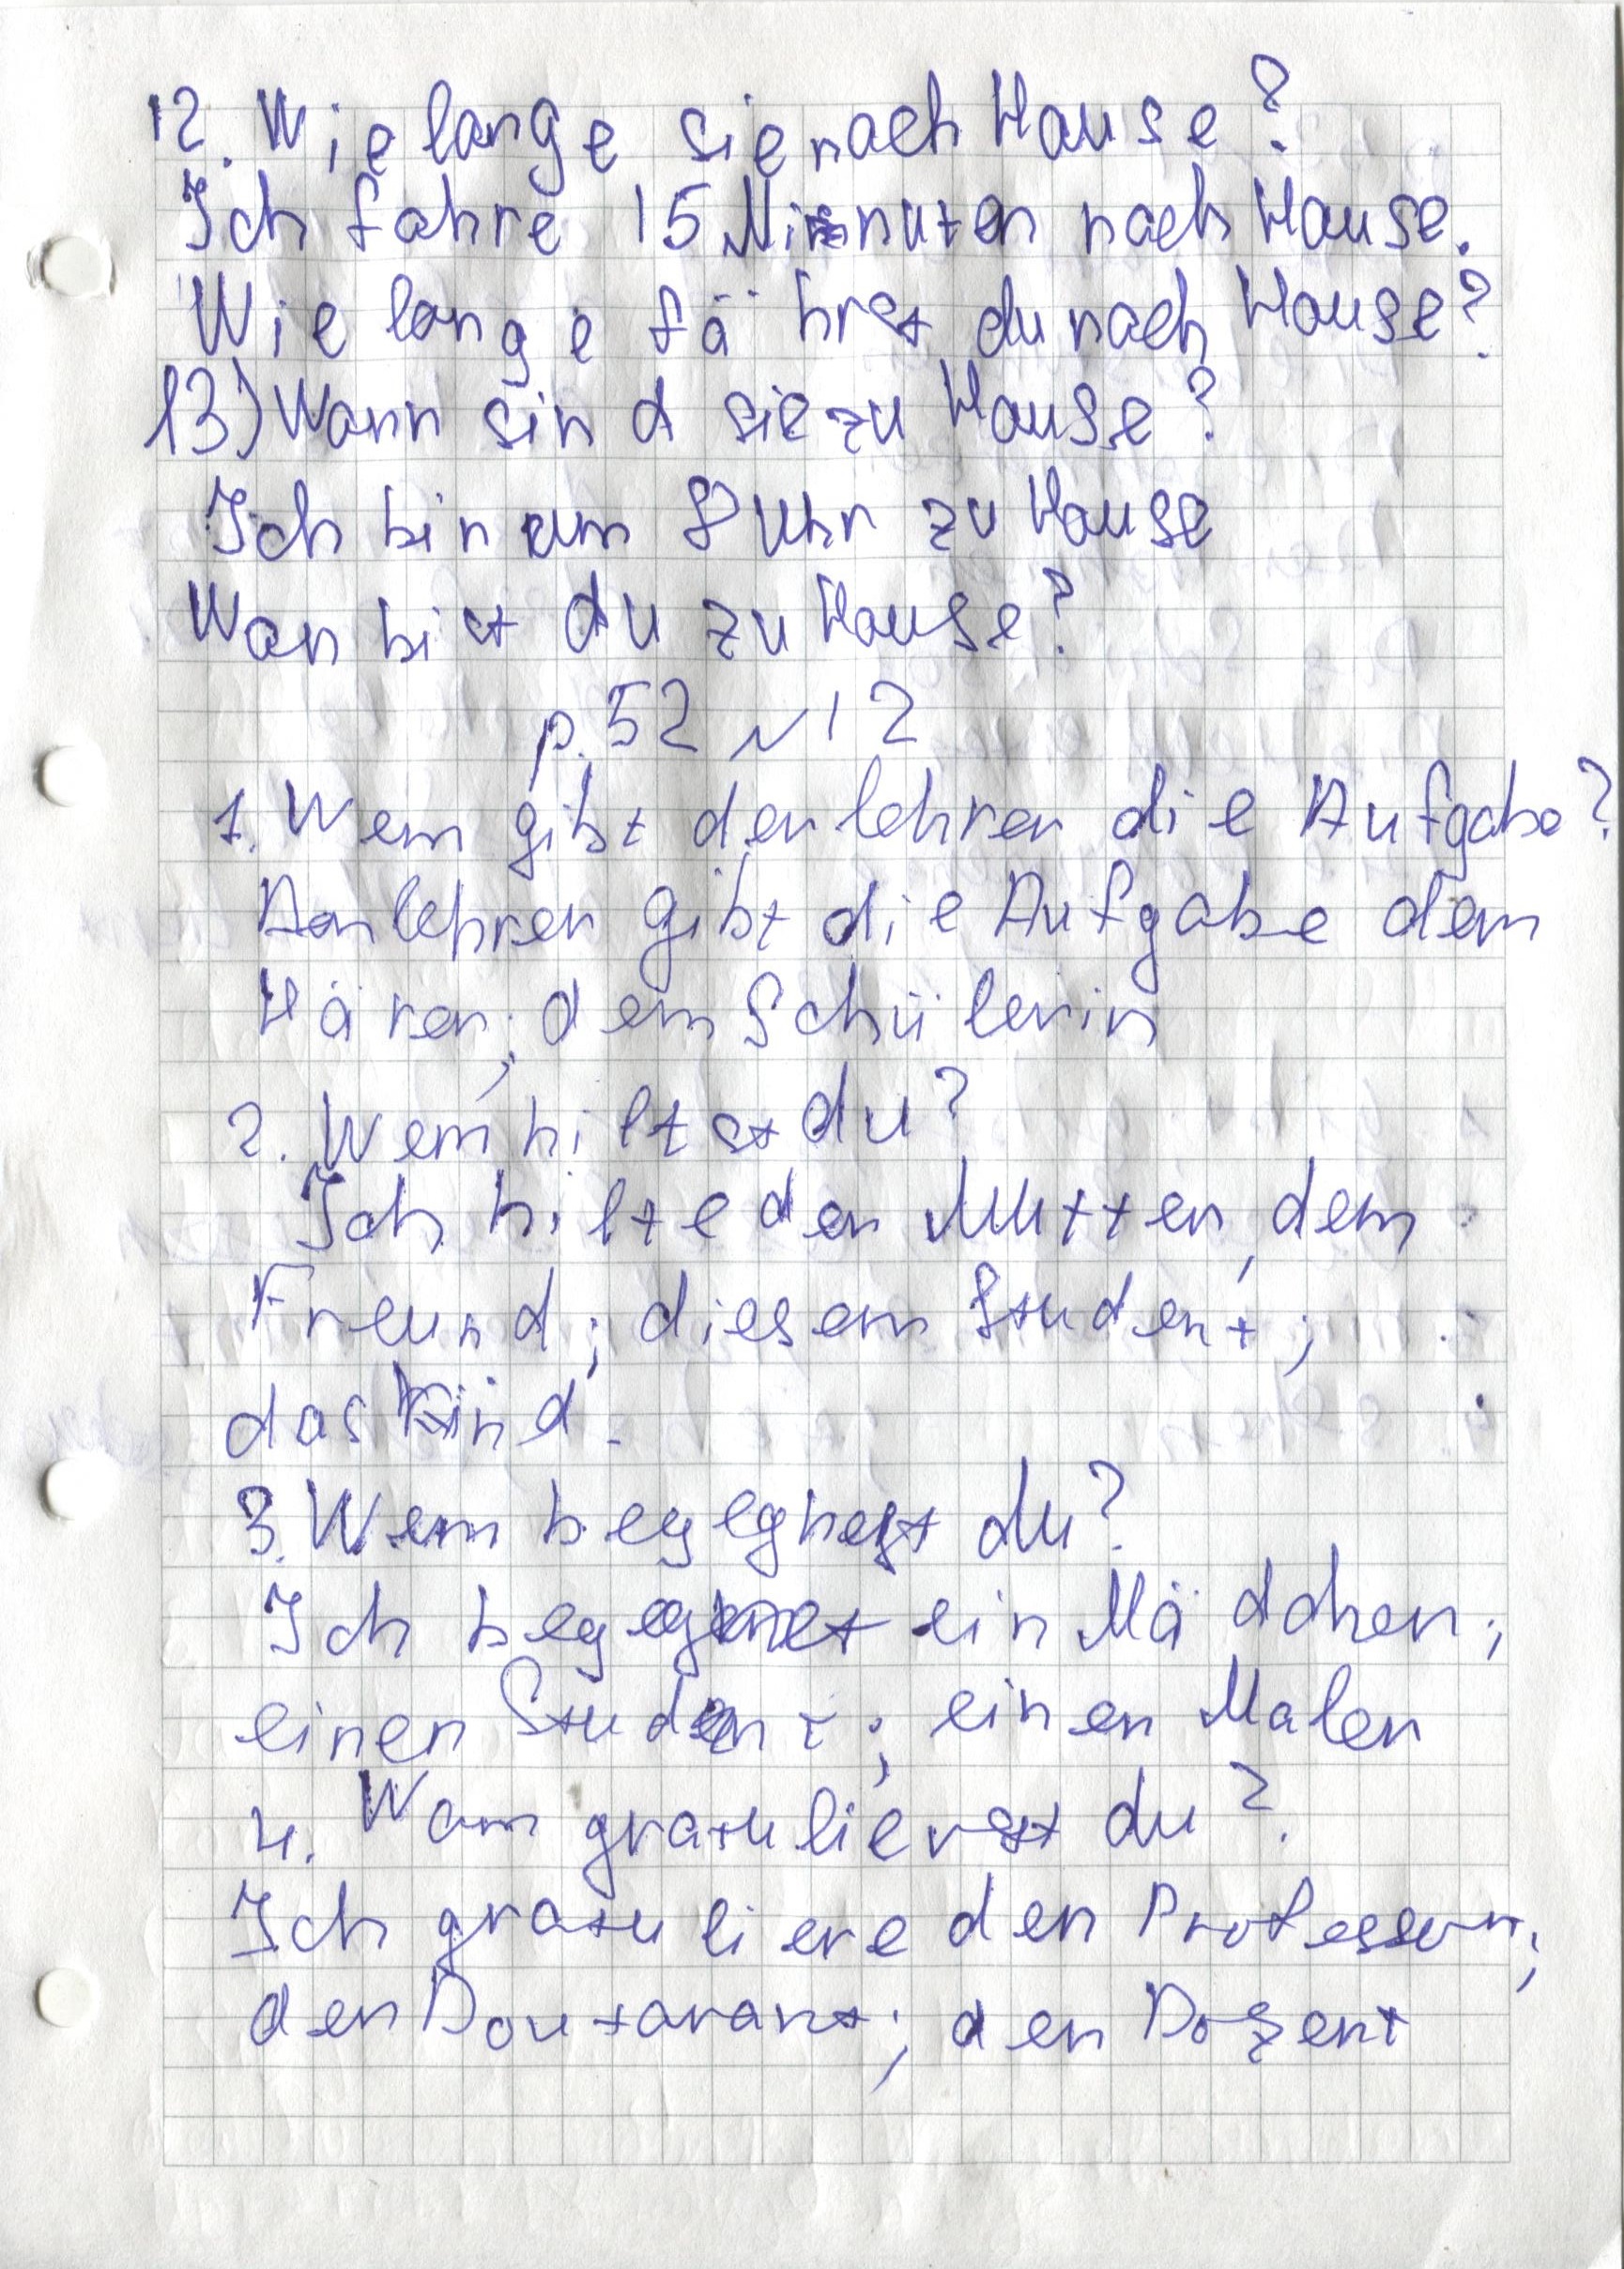 12. Wie lange sie nach Hause?
Ich fahre 15 Minuten nach Hause.
Wie lange fährst du nach Hause?
13) Wann sind sie zu Hause?
Ich bin um 8 Uhr zu Hause
Wan bist du zu Hause?
p. 52 N 12
1. Wem gibt der lehrer die Aufgabe?
Der lehrer gibt die Aufgabe dem
Härer; dem Schülerin
2. Wem hilfst du?
Ich hilfe der Mutter, dem
Freund; diesem Student;
das Kind.
3. Wem begegnest du?
Ich begegnet ein Mädchen;
einen Student; einen Maler
4. Wem gratulierst du?
Ich gratuliere den Professor;
den Doutarant; den Dozent